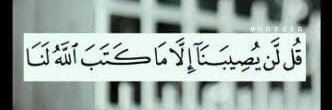 قُل لَّن يُصِيبَنَآ إِلَّا مَا كَتَبَ ٱللَّهُ لَنَا